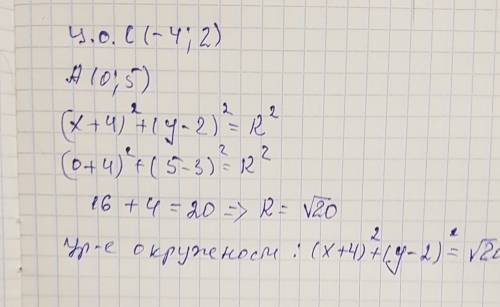 ц.о. C(-4; 2)
A(0; 5)
(x+4)² + (y-2)² = R²
(0+4)² + (5-3)² = R²
16 + 4 = 20 => R = √20
Ур-е окружност : (x+4)² + (y-2)² = √20